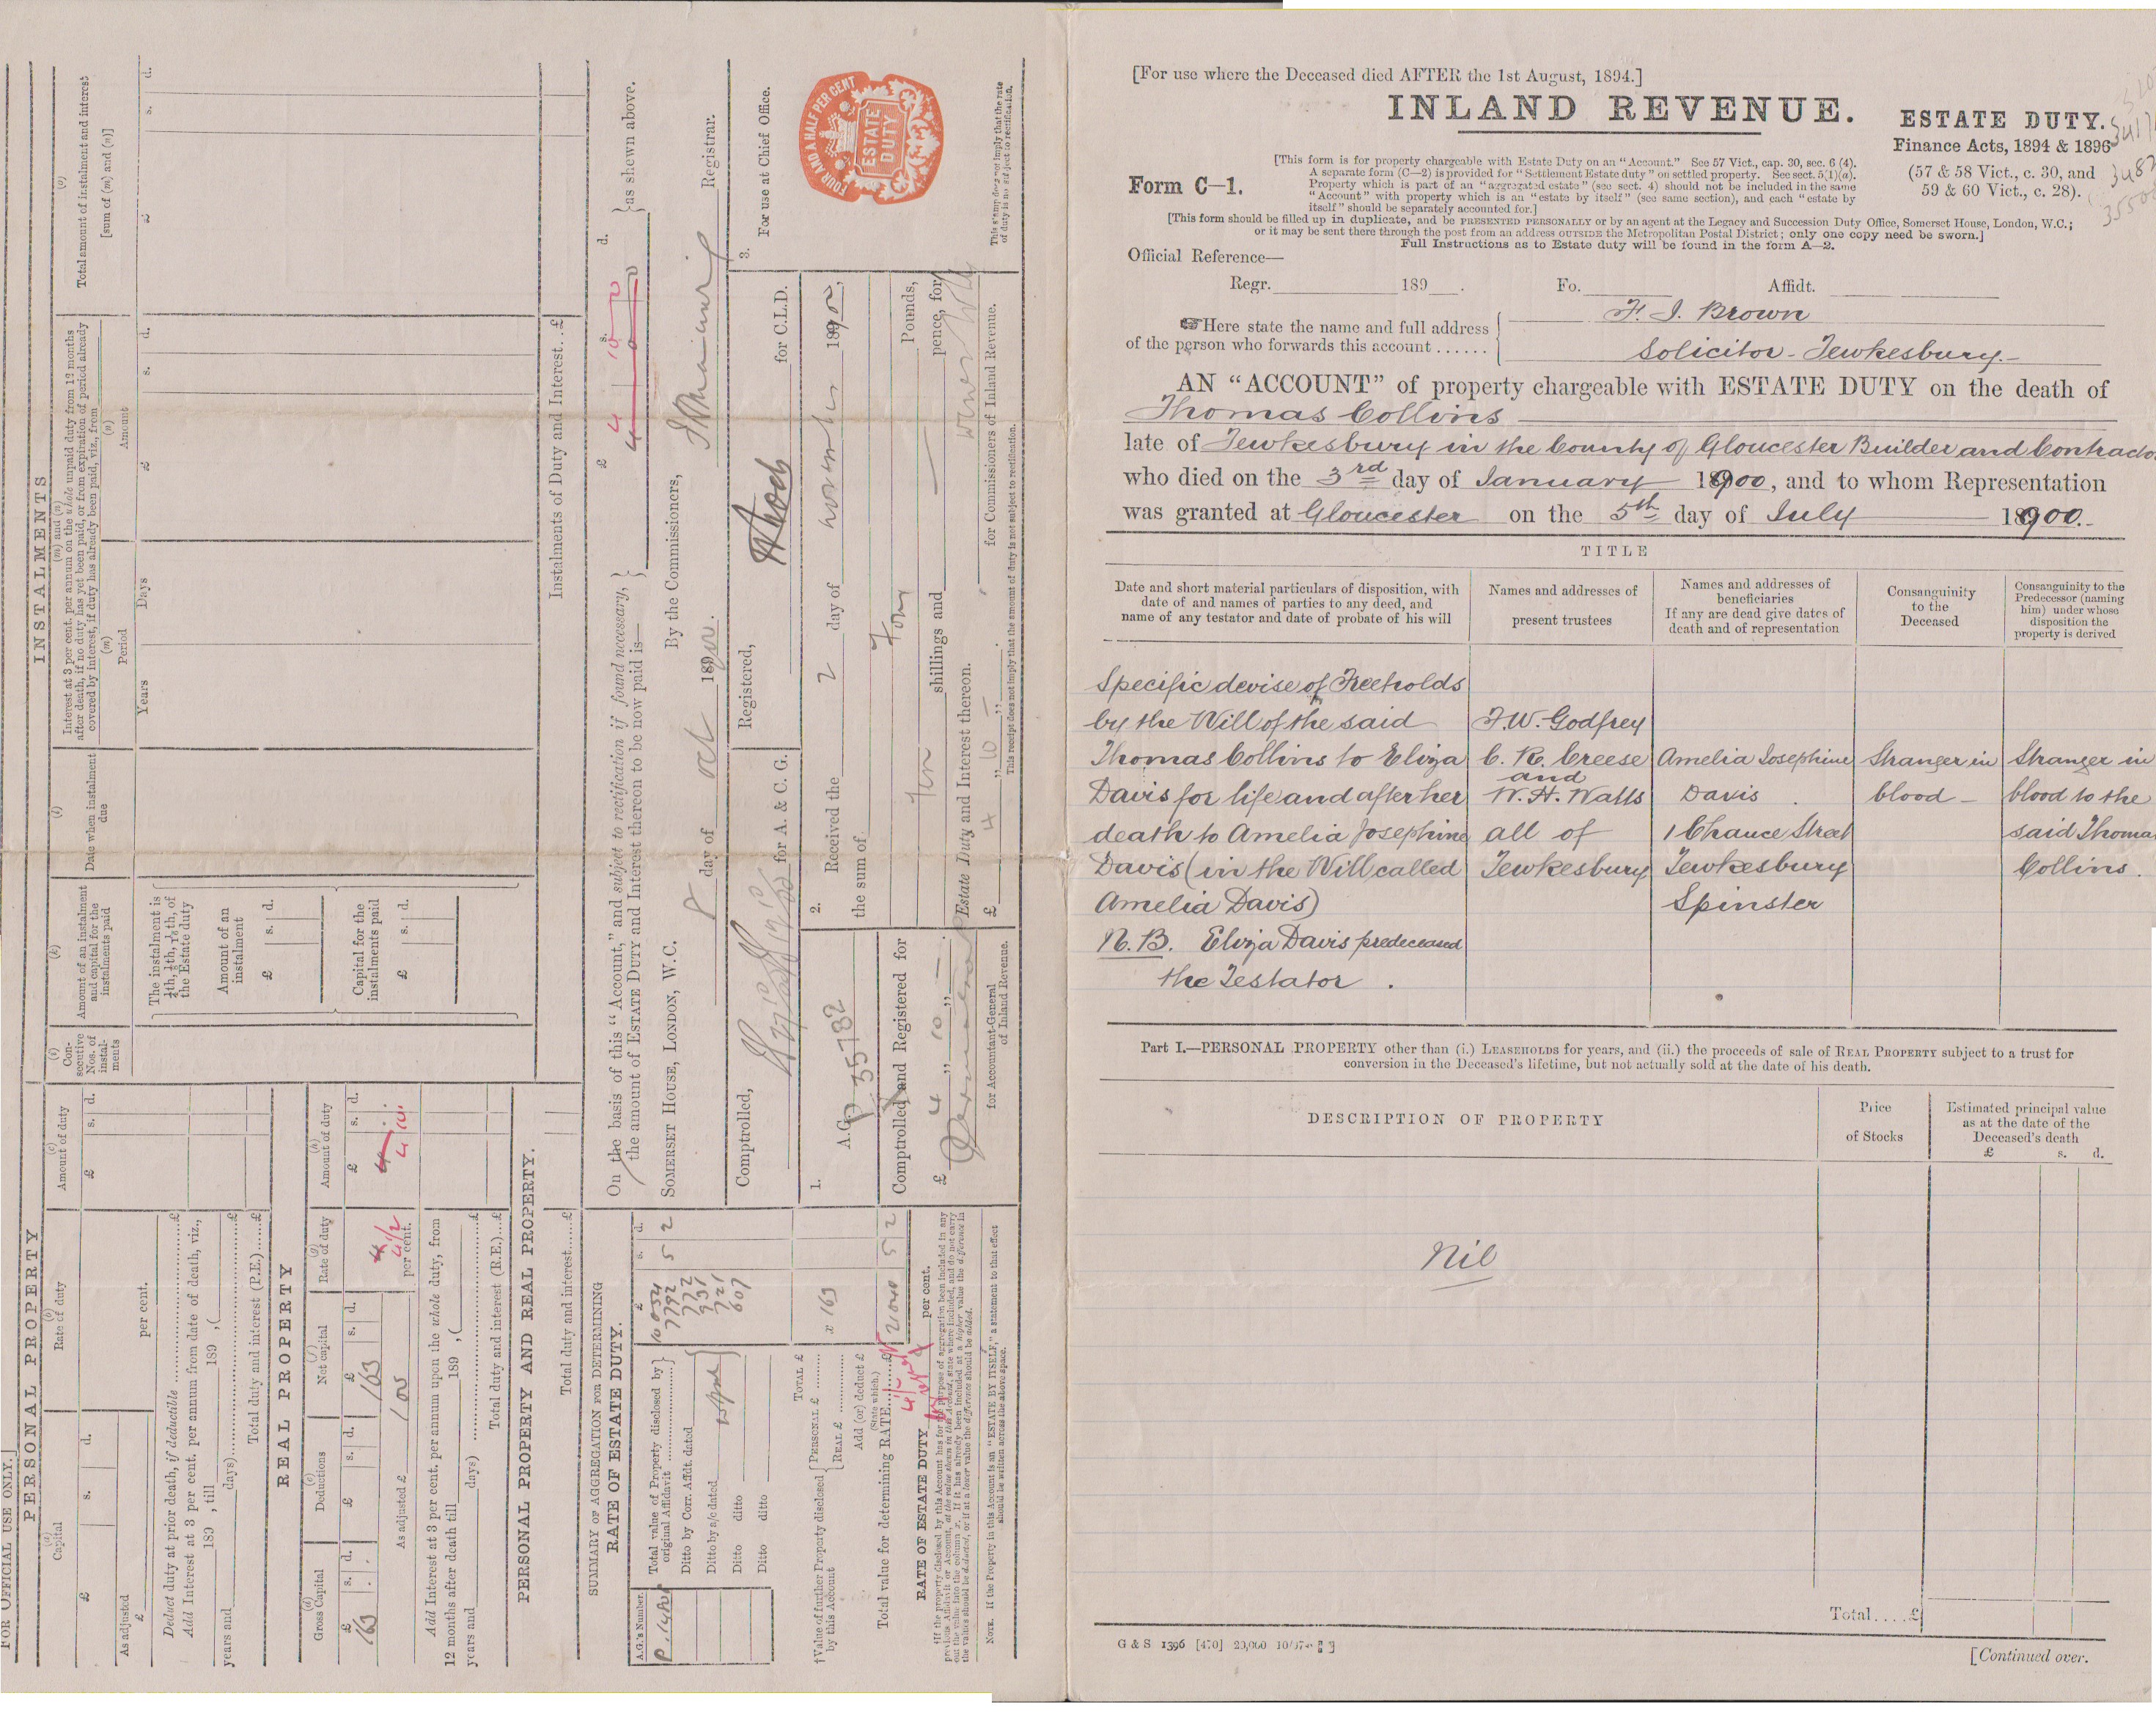 [For use where the Deceased died AFTER the 1st August, 1894.]
INLAND REVENUE.
ESTATE DUTY.
Finance Acts, 1894 & 1896
(57 & 58 Vict., c. 30, and
59 & 60 Vict., c. 28).
Form C—1.
[This form is for property chargeable with Estate Duty on an "Account." See 57 Vict., cap. 30, sec. 6 (4).
A separate form (C—2) is provided for "Settlement Estate duty" on settled property. See sect. 5(1)(a).
Property which is part of an "aggregated estate" (see sect. 4) should not be included in the same
"Account" with property which is an "estate by itself" (see same section), and each "estate by
itself" should be separately accounted for.]
[This form should be filled up in duplicate, and be PRESENTED PERSONALLY or by an agent at the Legacy and Succession Duty Office, Somerset House, London, W.C.;
or it may be sent there through the post from an address OUTSIDE the Metropolitan Postal District; only one copy need be sworn.]
Full Instructions as to Estate duty will be found in the form A—2.
Official Reference—
Regr. 189 . Fo. Affidt.
Here state the name and full address
of the person who forwards this account ......
F. J. Brown
Solicitor - Tewkesbury.-
AN "ACCOUNT" of property chargeable with ESTATE DUTY on the death of
Thomas Collins
late of Tewkesbury in the County of Gloucester Builder and Contractor
who died on the 3rd day of January 1900, and to whom Representation
was granted at Gloucester on the 5th day of July 1900.-
TITLE
Date and short material particulars of disposition, with
date of and names of parties to any deed, and
name of any testator and date of probate of his will
Names and addresses of
present trustees
Names and addresses of
beneficiaries
If any are dead give dates of
death and of representation
Consanguinity
to the
Deceased
Consanguinity to the
Predecessor (naming
him) under whose
disposition the
property is derived
Specific devise of Freeholds
by the Will of the said
Thomas Collins to Eliza
Davis for life and after her
death to Amelia Josephine
Davis (in the Will called
Amelia Davis)
N.B. Eliza Davis predeceased
the Testator .
F. W. Godfrey
C. R. Creese
and
W. H. Walls
all of
Tewkesbury
Amelia Josephine
Davis
1 Chance Street
Tewkesbury
Spinster
Stranger in
blood -
Stranger in
blood to the
said Thomas
Collins.
Part I.—PERSONAL PROPERTY other than (i.) LEASEHOLDS for years, and (ii.) the proceeds of sale of REAL PROPERTY subject to a trust for
conversion in the Deceased's lifetime, but not actually sold at the date of his death.
DESCRIPTION OF PROPERTY
Price
of Stocks
Estimated principal value
as at the date of the
Deceased's death
£ s. d.
Nil
Total....£
G & S 1396 [470] 20,000
[Continued over.
FOR OFFICIAL USE ONLY.]
PERSONAL PROPERTY
(a) Capital
(b) Rate of duty
(c) Amount of duty
£ s. d.
£ s. d.
As adjusted £
per cent.
Deduct duty at prior death, if deductible ......£
Add Interest at 3 per cent. per annum from date of death, viz.,
189 , till 189 , (
years and days)......£
Total duty and interest (P.E.)......£
REAL PROPERTY
(d) Gross Capital
(e) Deductions
(f) Net capital
(g) Rate of duty
(h) Amount of duty
£ s. d.
163
163
4 1/2
per cent.
4 10
As adjusted £ 100
Add Interest at 3 per cent. per annum upon the whole duty, from
12 months after death till 189 , (
years and days) ......£
Total duty and interest (R.E.)...£
PERSONAL PROPERTY AND REAL PROPERTY.
Total duty and interest......£
INSTALMENTS
(i) Consecutive Nos. of instalments
(k) Amount of an instalment and capital for the instalments paid
(l) Date when instalment due
(m) and (n)
Interest at 3 per cent. per annum on the whole unpaid duty from 12 months
after death, if no duty has yet been paid, or from expiration of period already
covered by interest, if duty has already been paid, viz., from
(m) Period
(n) Amount
Years Days £ s. d.
(o)
Total amount of instalment and interest
[sum of (m) and (n)]
£ s. d.
The instalment is
⅛th, ¼th, 1/16th, of
the Estate duty
Amount of an
instalment
£ s. d.
Capital for the
instalments paid
£ s. d.
Instalments of Duty and Interest..£
SUMMARY OF AGGREGATION FOR DETERMINING
RATE OF ESTATE DUTY.
A.G.'s Number.
Total value of Property disclosed by
original Affidavit
Ditto by Corr. Affdt. dated
Ditto by a/c dated
Ditto ditto
Ditto ditto
£ s. d.
10054 5 2
7792
772
931
721
607
TOTAL £
†Value of further Property disclosed
by this Account
PERSONAL £
REAL £
x 163
Add (or) deduct £
(State which.)
Total value for determining RATE......£ 21040 5 2
RATE OF ESTATE DUTY per cent.
†If the property disclosed by this Account has for the purpose of aggregation been included in any
previous Affidavit or Account, at the value shewn in this Account, state where included, and do not carry
out the value into the column x. If it has already been included at a higher value the difference in
the values should be deducted, or if at a lower value the difference should be added.
NOTE. If the Property in this Account is an "ESTATE BY ITSELF," a statement to that effect
should be written across the above space.
On the basis of this "Account," and subject to rectification if found necessary,
the amount of ESTATE DUTY and Interest thereon to be now paid is—
£ s. d.
4 10 0
as shewn above.
SOMERSET HOUSE, LONDON, W.C.
By the Commissioners,
8 day of Oct 1900.
Registrar.
Comptrolled,
for A. & C. G.
Registered,
for C.L.D.
1.
A.G. 35782
Comptrolled and Registered for
£ 4 ,, 10 ,, —
for Accountant-General
of Inland Revenue.
2.
Received the 2 day of November 1900,
the sum of Four Pounds,
Ten shillings and — pence, for
Estate Duty and Interest thereon.
£ 4 ,, 10 ,, — .
for Commissioners of Inland Revenue.
This receipt does not imply that the amount of duty is not subject to rectification.
3.
For use at Chief Office.
FOUR AND A HALF PER CENT
ESTATE
DUTY
This stamp does not imply that the rate
of duty is not subject to rectification.